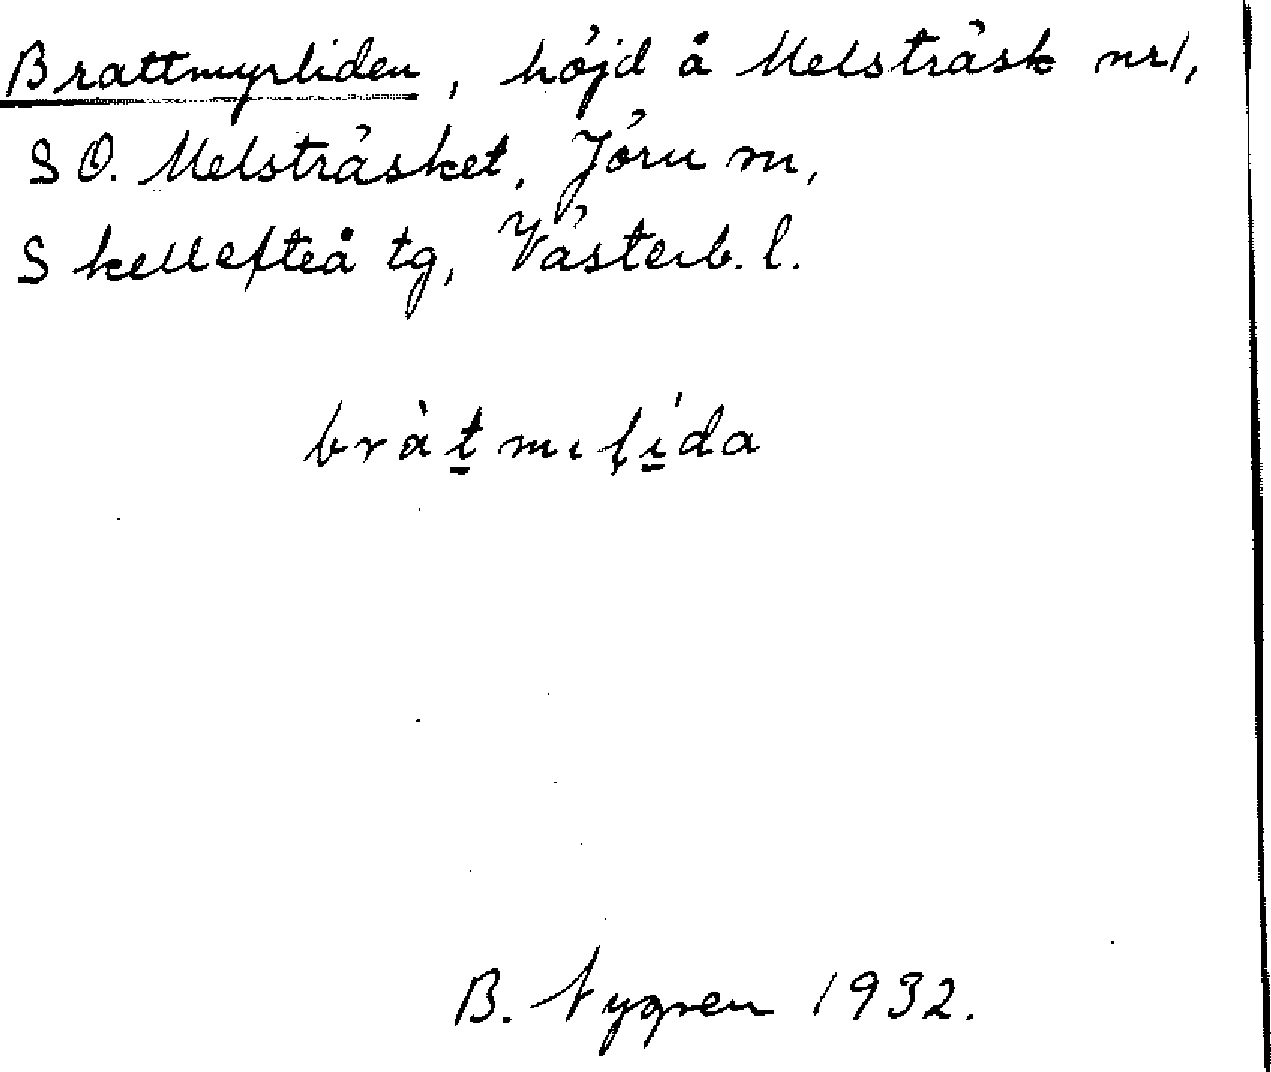 Brattmyrliden, höjd å Melsträsk nr 1,
SO. Melsträsket, Jörn sn,
Skellefteå tg, Västerb. l.
bràt̲mıļı̲́da
B. Nygren 1932.